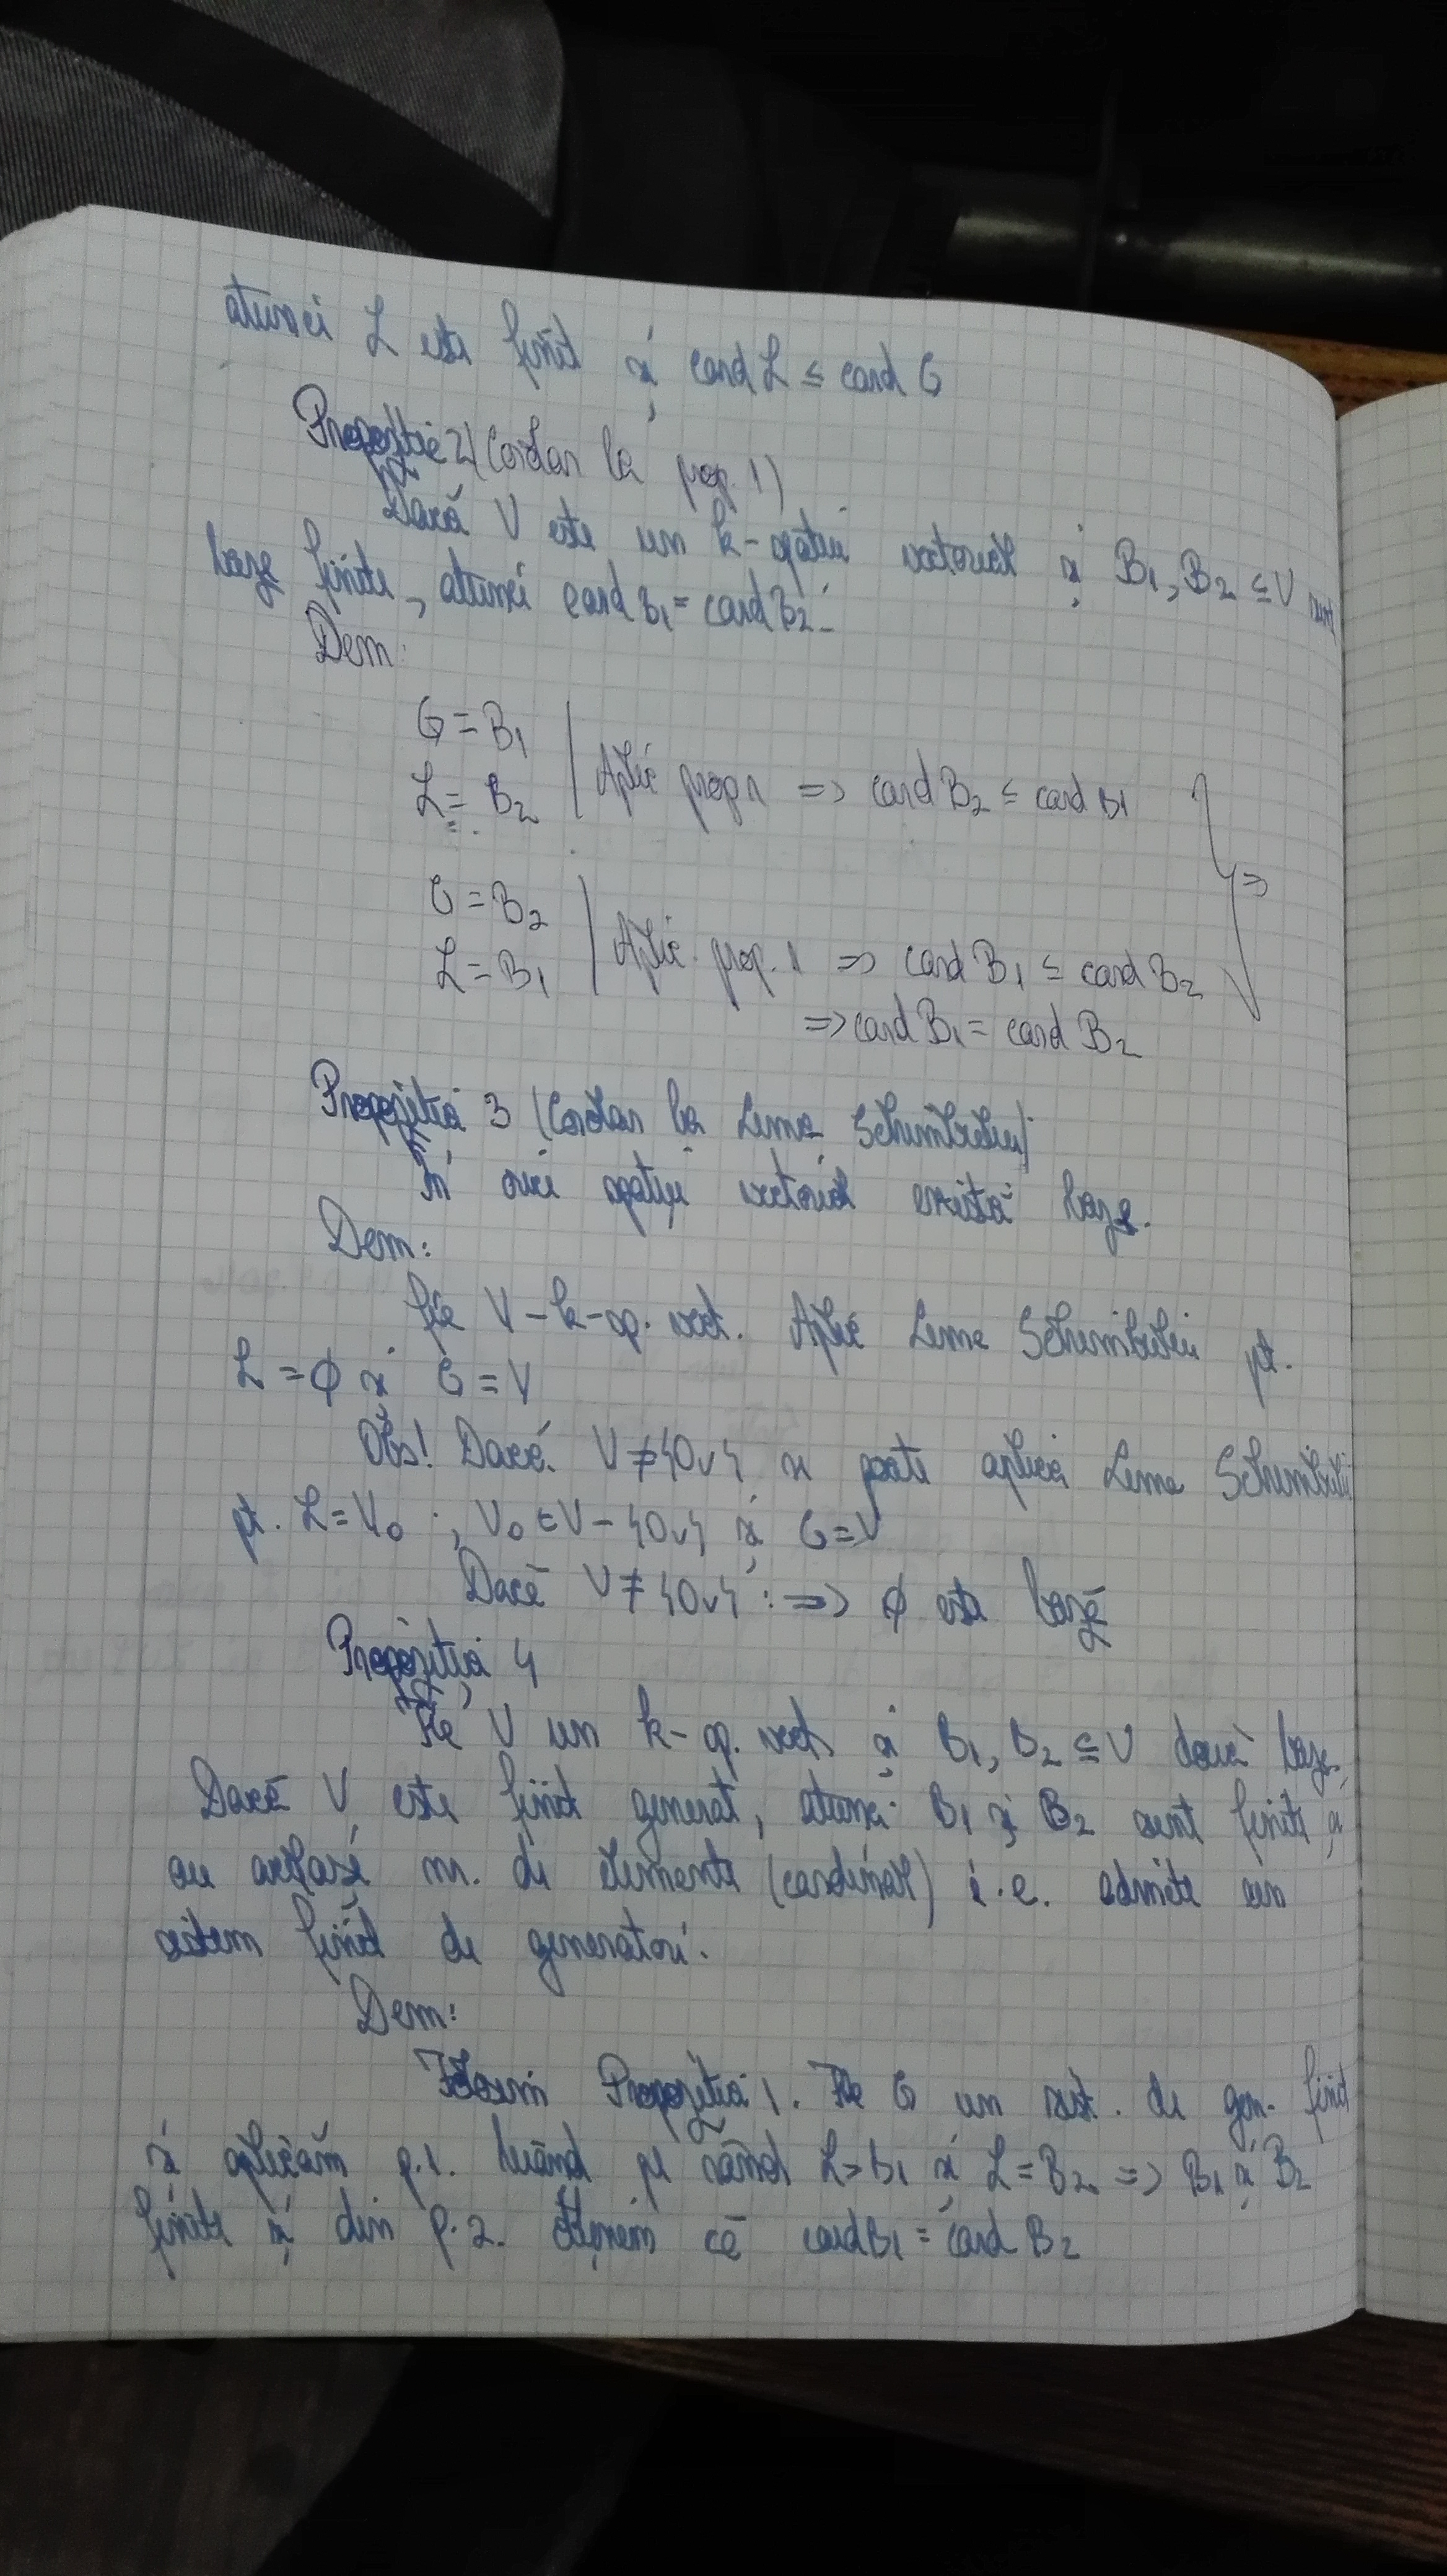 atunci L este finit și card L ≤ card G
Propoziție 2 (Corolar la prop. 1)
Dacă V este un k-spațiu vectorial și B₁, B₂ ⊆ V sunt
baze finite, atunci card B₁ = card B₂.
Dem:
G = B₁
L = B₂ | Aplic prop 1 => card B₂ ≤ card B₁
=>
G = B₂
L = B₁ | Aplic. prop. 1 => card B₁ ≤ card B₂
=> card B₁ = card B₂
Propoziția 3 (Corolar la Lema Schimbului)
În orice spațiu vectorial există baze.
Dem:
Fie V - k-sp. vect. Aplic Lema Schimbului pt.
L = ∅ și G = V
Obs! Dacă V ≠ {0v} se poate aplica Lema Schimbului
pt. L = V₀ ; V₀ ∈ V - {0v} și G = V
Dacă V ≠ {0v} : => ∅ este bază
Propoziția 4
Fie V un k-sp. vect și B₁, B₂ ⊆ V două baze.
Dacă V este finit generat, atunci B₁ și B₂ sunt finite și
au același nr. de elemente (cardinal) i.e. admite un
sistem finit de generatori.
Dem:
Folosim Propoziția 1. Fie G un sist. de gen. finit
și aplicăm p.1. luând pe rând L = B₁ și L = B₂ => B₁ și B₂
finite și din p.2. obținem că card B₁ = card B₂